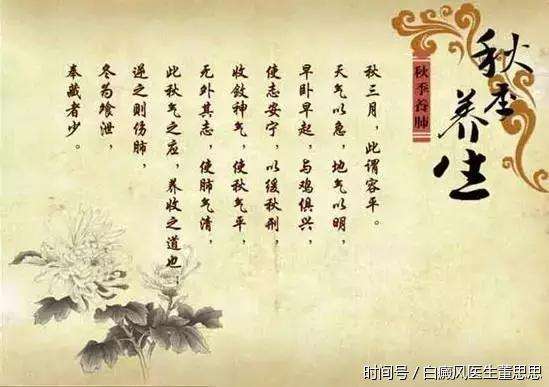 秋季养生
秋季养肺
秋三月，此谓容平。
天气以急，地气以明，
早卧早起，与鸡俱兴，
使志安宁，以缓秋刑，
收敛神气，使秋气平，
无外其志，使肺气清，
此秋气之应，养收之道也，
逆之则伤肺，
冬为飧泄，
奉藏者少。
时间号／白癜风医生董思思